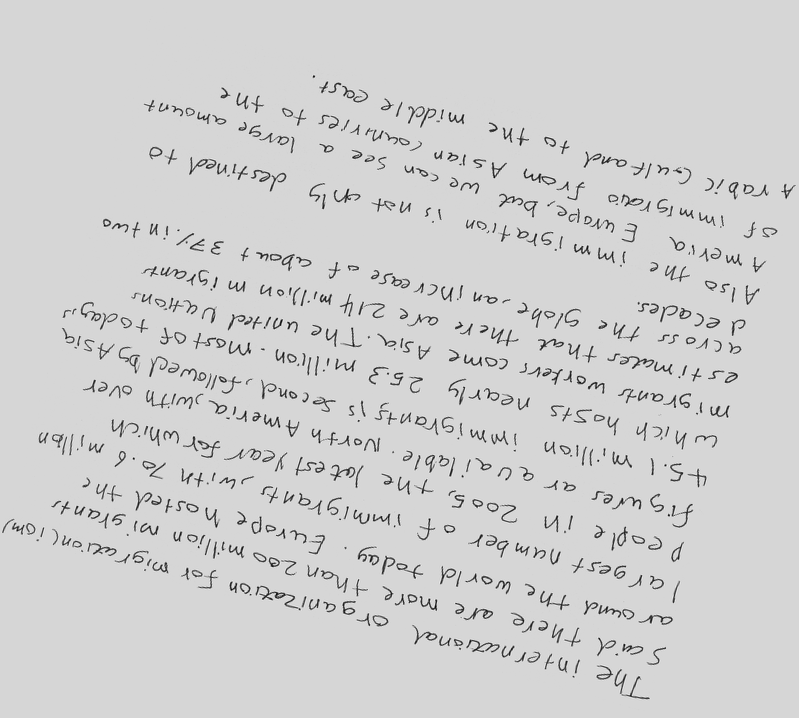 The international organization for migration(iom)
said there are more than 200 million migrants
around the world today. Europe hosted the
largest number of immigrants, with 70.6 millon
people in 2005, the latest year for which
figures ar available. North America, with over
45.1 million immigrants is second, followed by Asia
which hosts nearly 25.3 million. most of today's
migrants workers come Asia. The united Nations
estimates that there are 214 million migrants
across the globe, an increase of about 37% in two
decades.
Also the immigration is not only destined to
Ameria, Europe, but we can see a large amount
of immigratio from Asian countries to the
Arabic Gulf and to the middle east.